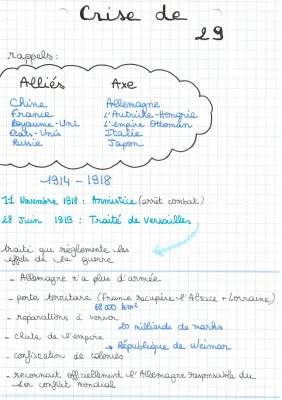 Crise de
29
rappels :
Alliés Axe
Chine Allemagne
France L'Autriche-Hongrie
Royaume-Uni L'empire Ottoman
Etats-Unis Italie
Russie Japon
1914 - 1918
11 Novembre 1918 : Armistice (arrêt combat)
28 Juin 1919 : Traité de Versailles
traité qui réglemente les
effets de la guerre
- Allemagne n'a plus d'armée
- perte territoire (France récupère l'Alsace + Lorraine)
68 000 km²
- réparations à verser
20 milliards de marks
- chute de l'empire
→ République de Weimar
- confiscation de colonies
- reconnait officiellement l'Allemagne responsable du
1er conflit mondial